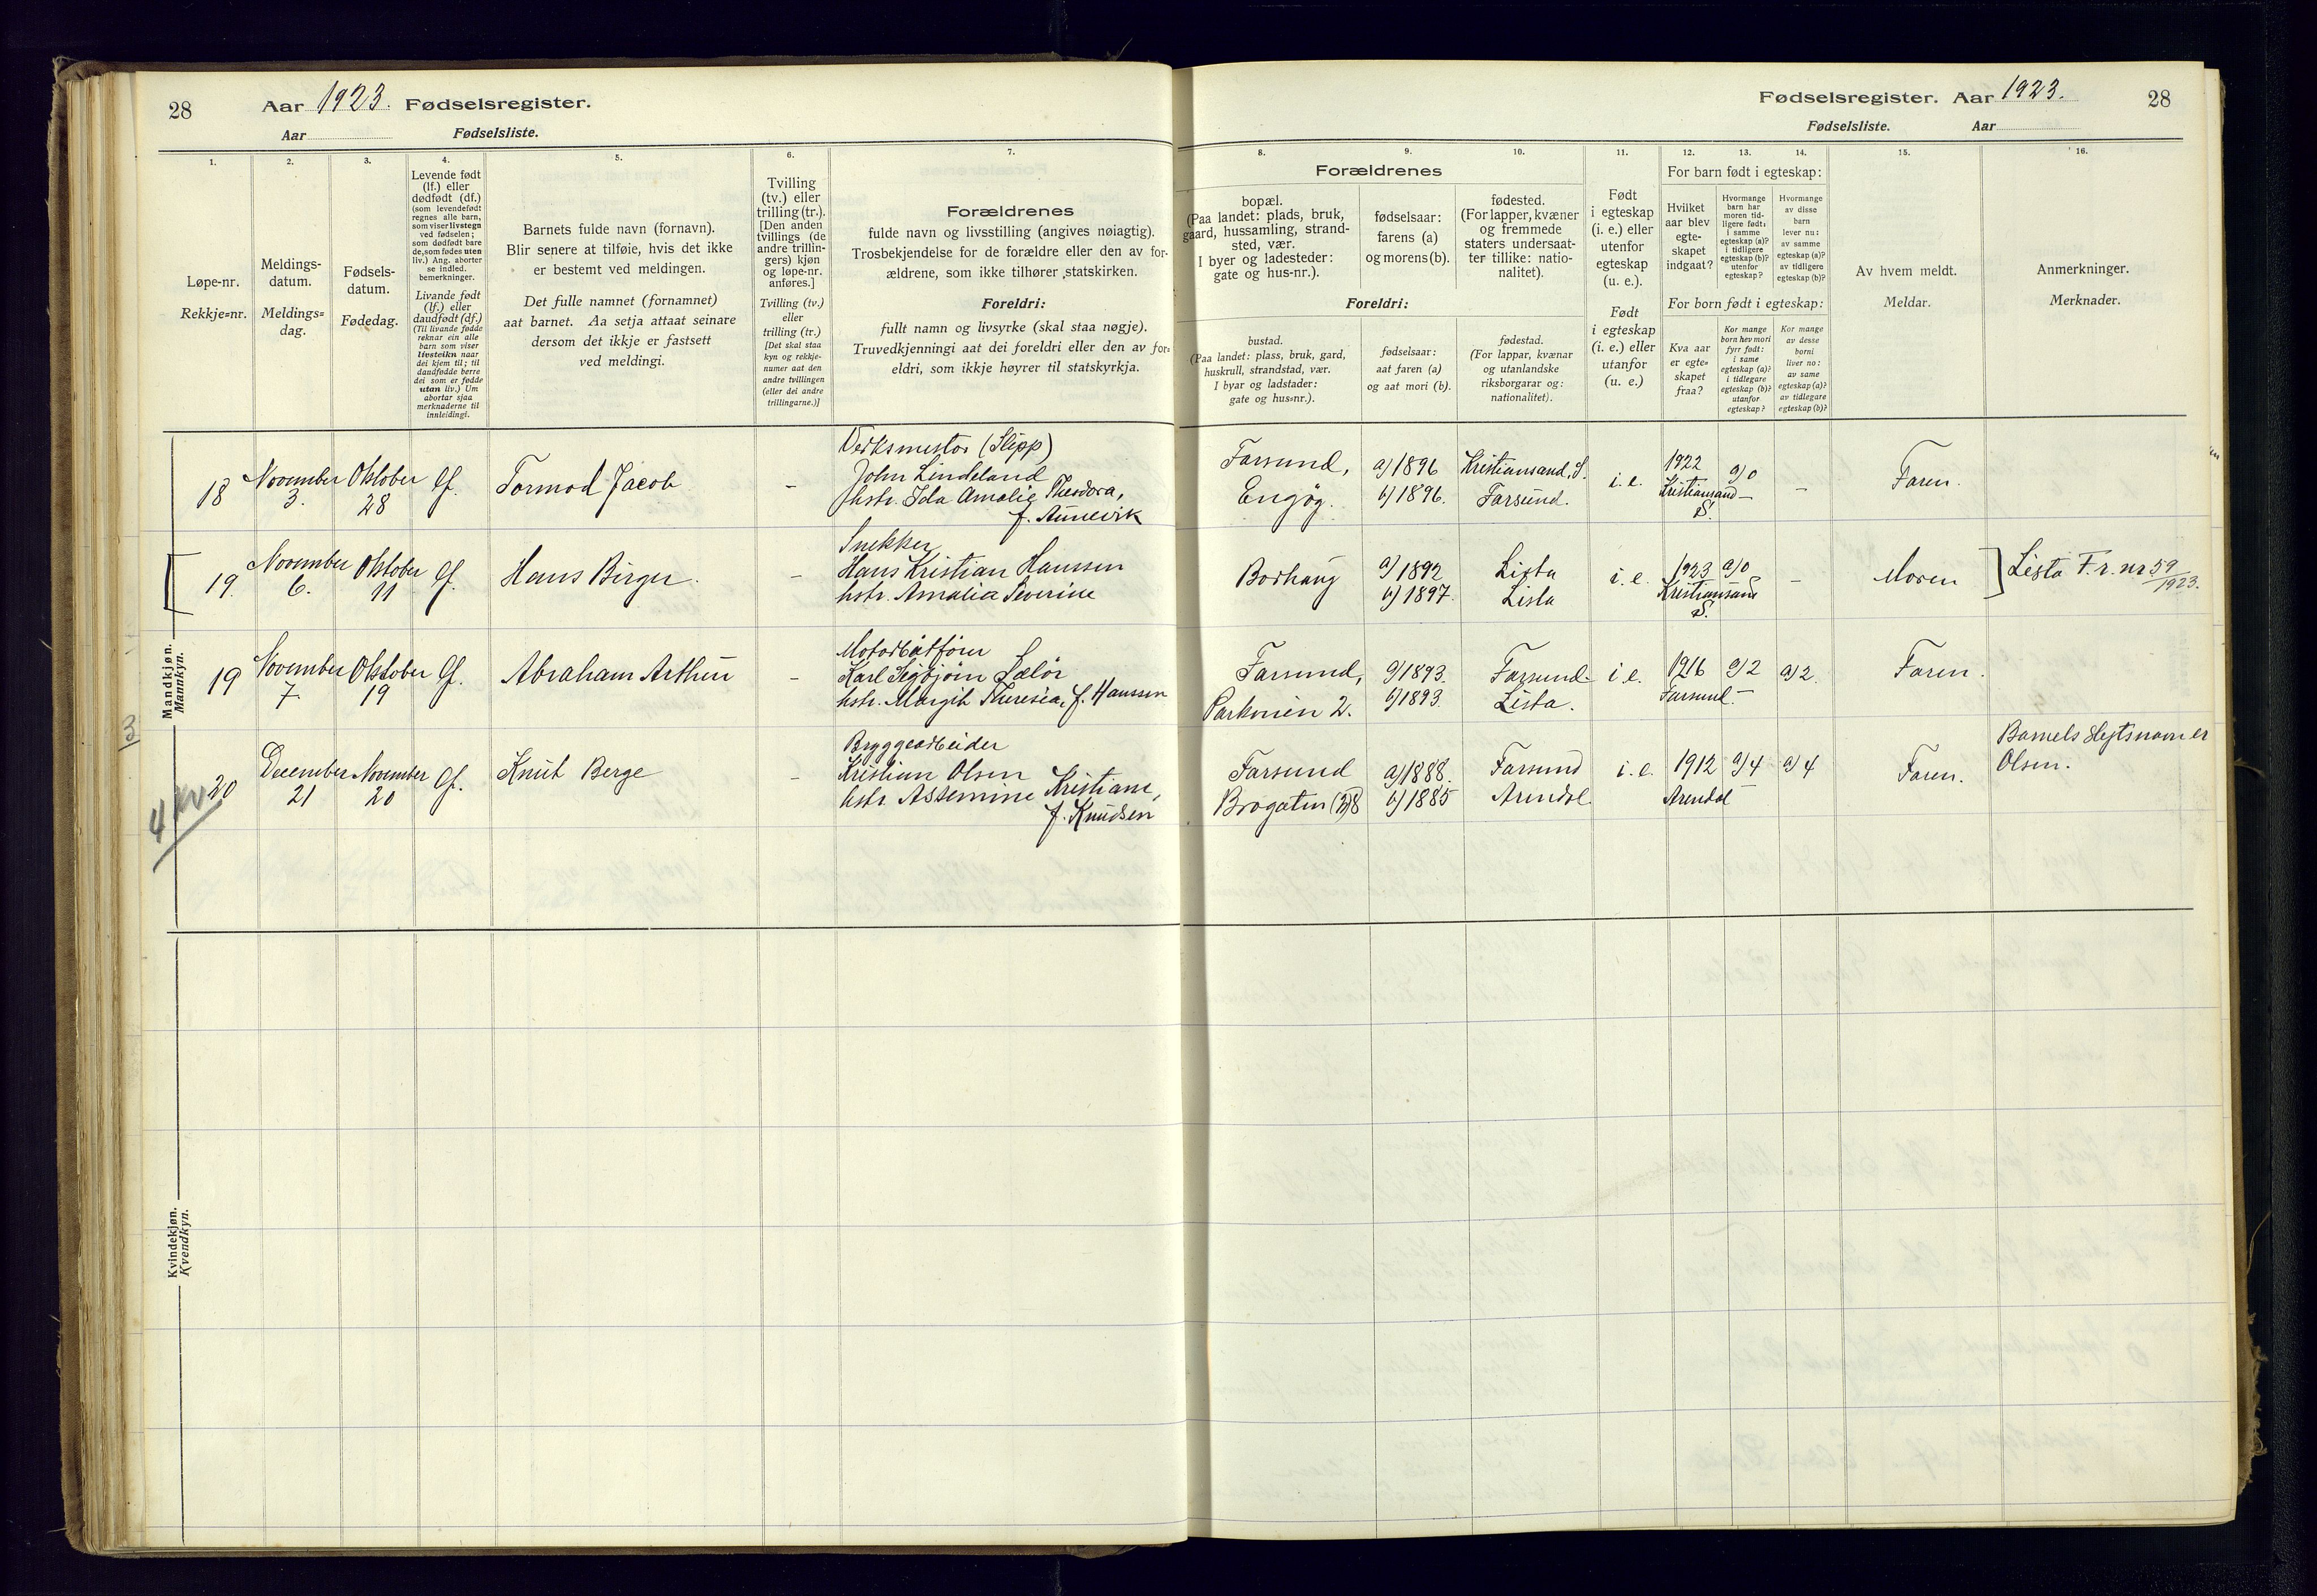 28 Aar 1923. Fødselsregister.
Aar Fødselsliste.
1.
Løpe-nr.
Rekkje=nr.
2.
Meldings-
datum.
Meldings=
dag.
3.
Fødsels-
datum.
Fødedag.
4.
Levende født
(lf.) eller
dødfødt (df.)
(som levendefødt
regnes alle barn,
som viser livstegn
ved fødselen;
som dødfødt bare
de, som fødes uten
liv.) Ang. aborter
se indled.
bemerkninger.
Livande født
(lf.) eller
daudfødt (df.)
(Til livande fødde
reknar ein alle
barn som viser
livsteikn naar
dei kjem til; til
daudfødde berre
dei som er fødde
utan liv.) Um
abortar sjaa
merknaderne til
innleidingi.
5.
Barnets fulde navn (fornavn).
Blir senere at tilføie, hvis det ikke
er bestemt ved meldingen.
Det fulle namnet (fornamnet)
aat barnet. Aa setja attaat seinare
dersom det ikkje er fastsett
ved meldingi.
6.
Tvilling
(tv.) eller
trilling (tr.).
[Den anden
tvillings (de
andre trillin-
gers) kjøn
og løpe-nr.
anføres.]
Tvilling (tv.)
eller
trilling (tr.)
[Det skal staa
kyn og rekkje-
numer aat den
andre tvillingen
(eller dei andre
trillingarne.)]
7.
Forældrenes
fulde navn og livsstilling (angives nøiagtig).
Trosbekjendelse for de forældre eller den av for-
ældrene, som ikke tilhører statskirken.
Foreldri:
fullt namn og livsyrke (skal staa nøgje).
Truvedkjenningi aat dei foreldri eller den av for=
eldri, som ikkje høyrer til statskyrkja.
Mandkjøn.
Mannkyn.
18 November 3. Oktober 28 lf. Tormod Jacob –
Verksmester (Slipp)
John Lindeland
hstr. Ida Amalie Theodora,
f. Aunevik
19. November 6. Oktober 11 lf. Hans Birger. –
Snekker
Hans Kristian Hanssen
hstr. Amalia Severine
19 November 7. Oktober 19 lf. Abraham Arthur –
Motorbåtfører
Karl Sigbjørn Sælør
hstr. Margit Theresia, f. Hanssen
3
20 December 21 November 20 lf. Knut Berge –
Bryggearbeider
Kristian Olsen
hstr. Assemine Kristiane,
f. Knudsen
Kvindekjøn.
Kvendkyn.
Fødselsregister. Aar 1923. 28
Fødselsliste. Aar
8.
Forældrenes
bopæl.
(Paa landet: plads, bruk,
gaard, hussamling, strand-
sted, vær.
I byer og ladesteder:
gate og hus-nr.).
Foreldri:
bustad.
(Paa landet: plass, bruk, gard,
huskrull, strandstad, vær.
I byar og ladstader:
gate og hus=nr.).
9.
fødselsaar:
farens (a)
og morens (b).
fødselsaar:
aat faren (a)
og aat mori (b).
10.
fødested.
(For lapper, kvæner
og fremmede
staters undersaat-
ter tillike: natio-
nalitet).
fødestad.
(For lappar, kvænar
og utanlandske
riksborgarar og:
nationalitet).
11.
Født
i egteskap
(i. e.) eller
utenfor
egteskap
(u. e.).
Født
i egteskap
(i. e.) eller
utanfor
(u. e.)
12. 13. 14.
For barn født i egteskap:
Hvilket
aar blev
egte-
skapet
indgaat?
Hvormange
barn har
moren tid-
ligere født:
i samme
egteskap (a)?
i tidligere
egteskap (b)?
utenfor
egteskap?
Hvormange
av disse
barn
lever nu:
av samme
egteskap (a)?
av tidligere
egteskap (b)?
For born født i egteskap:
Kva aar
er egte-
skapet
fraa?
Kor mange
born hev mori
fyrr født:
i same
egteskap (a)?
i tidlegare
egteskap (b)?
utanfor
egteskap?
Kor mange
av desse
borni
liver no:
av same
egteskap (a)?
av tidlegare
egteskap (b)?
15.
Av hvem meldt.
Meldar.
16.
Anmerkninger.
Merknader.
Farsund, a) 1896 Kristiansand, S. i. e. 1922 a) 0 – Faren.
Engøg. b) 1896. Farsund. Kristiansand –
S.
Borhaug a) 1892 Lista i. e. 1923 a) 0 – Moren ] Lista F.r. nr 59/1923.
b) 1897. Lista Kristiansand
S.
Farsund, a) 1893. Farsund. i e. 1916 a) 2 a) 2. Faren.
2. b) 1893. Lista. Farsund. –
Farsund a) 1888. Farsund i. e. 1912 a) 4 a) 4 Faren. Barnets slegtsnavn er
Brogaten 8 b) 1885 Arendal. Arendal – Olsen.